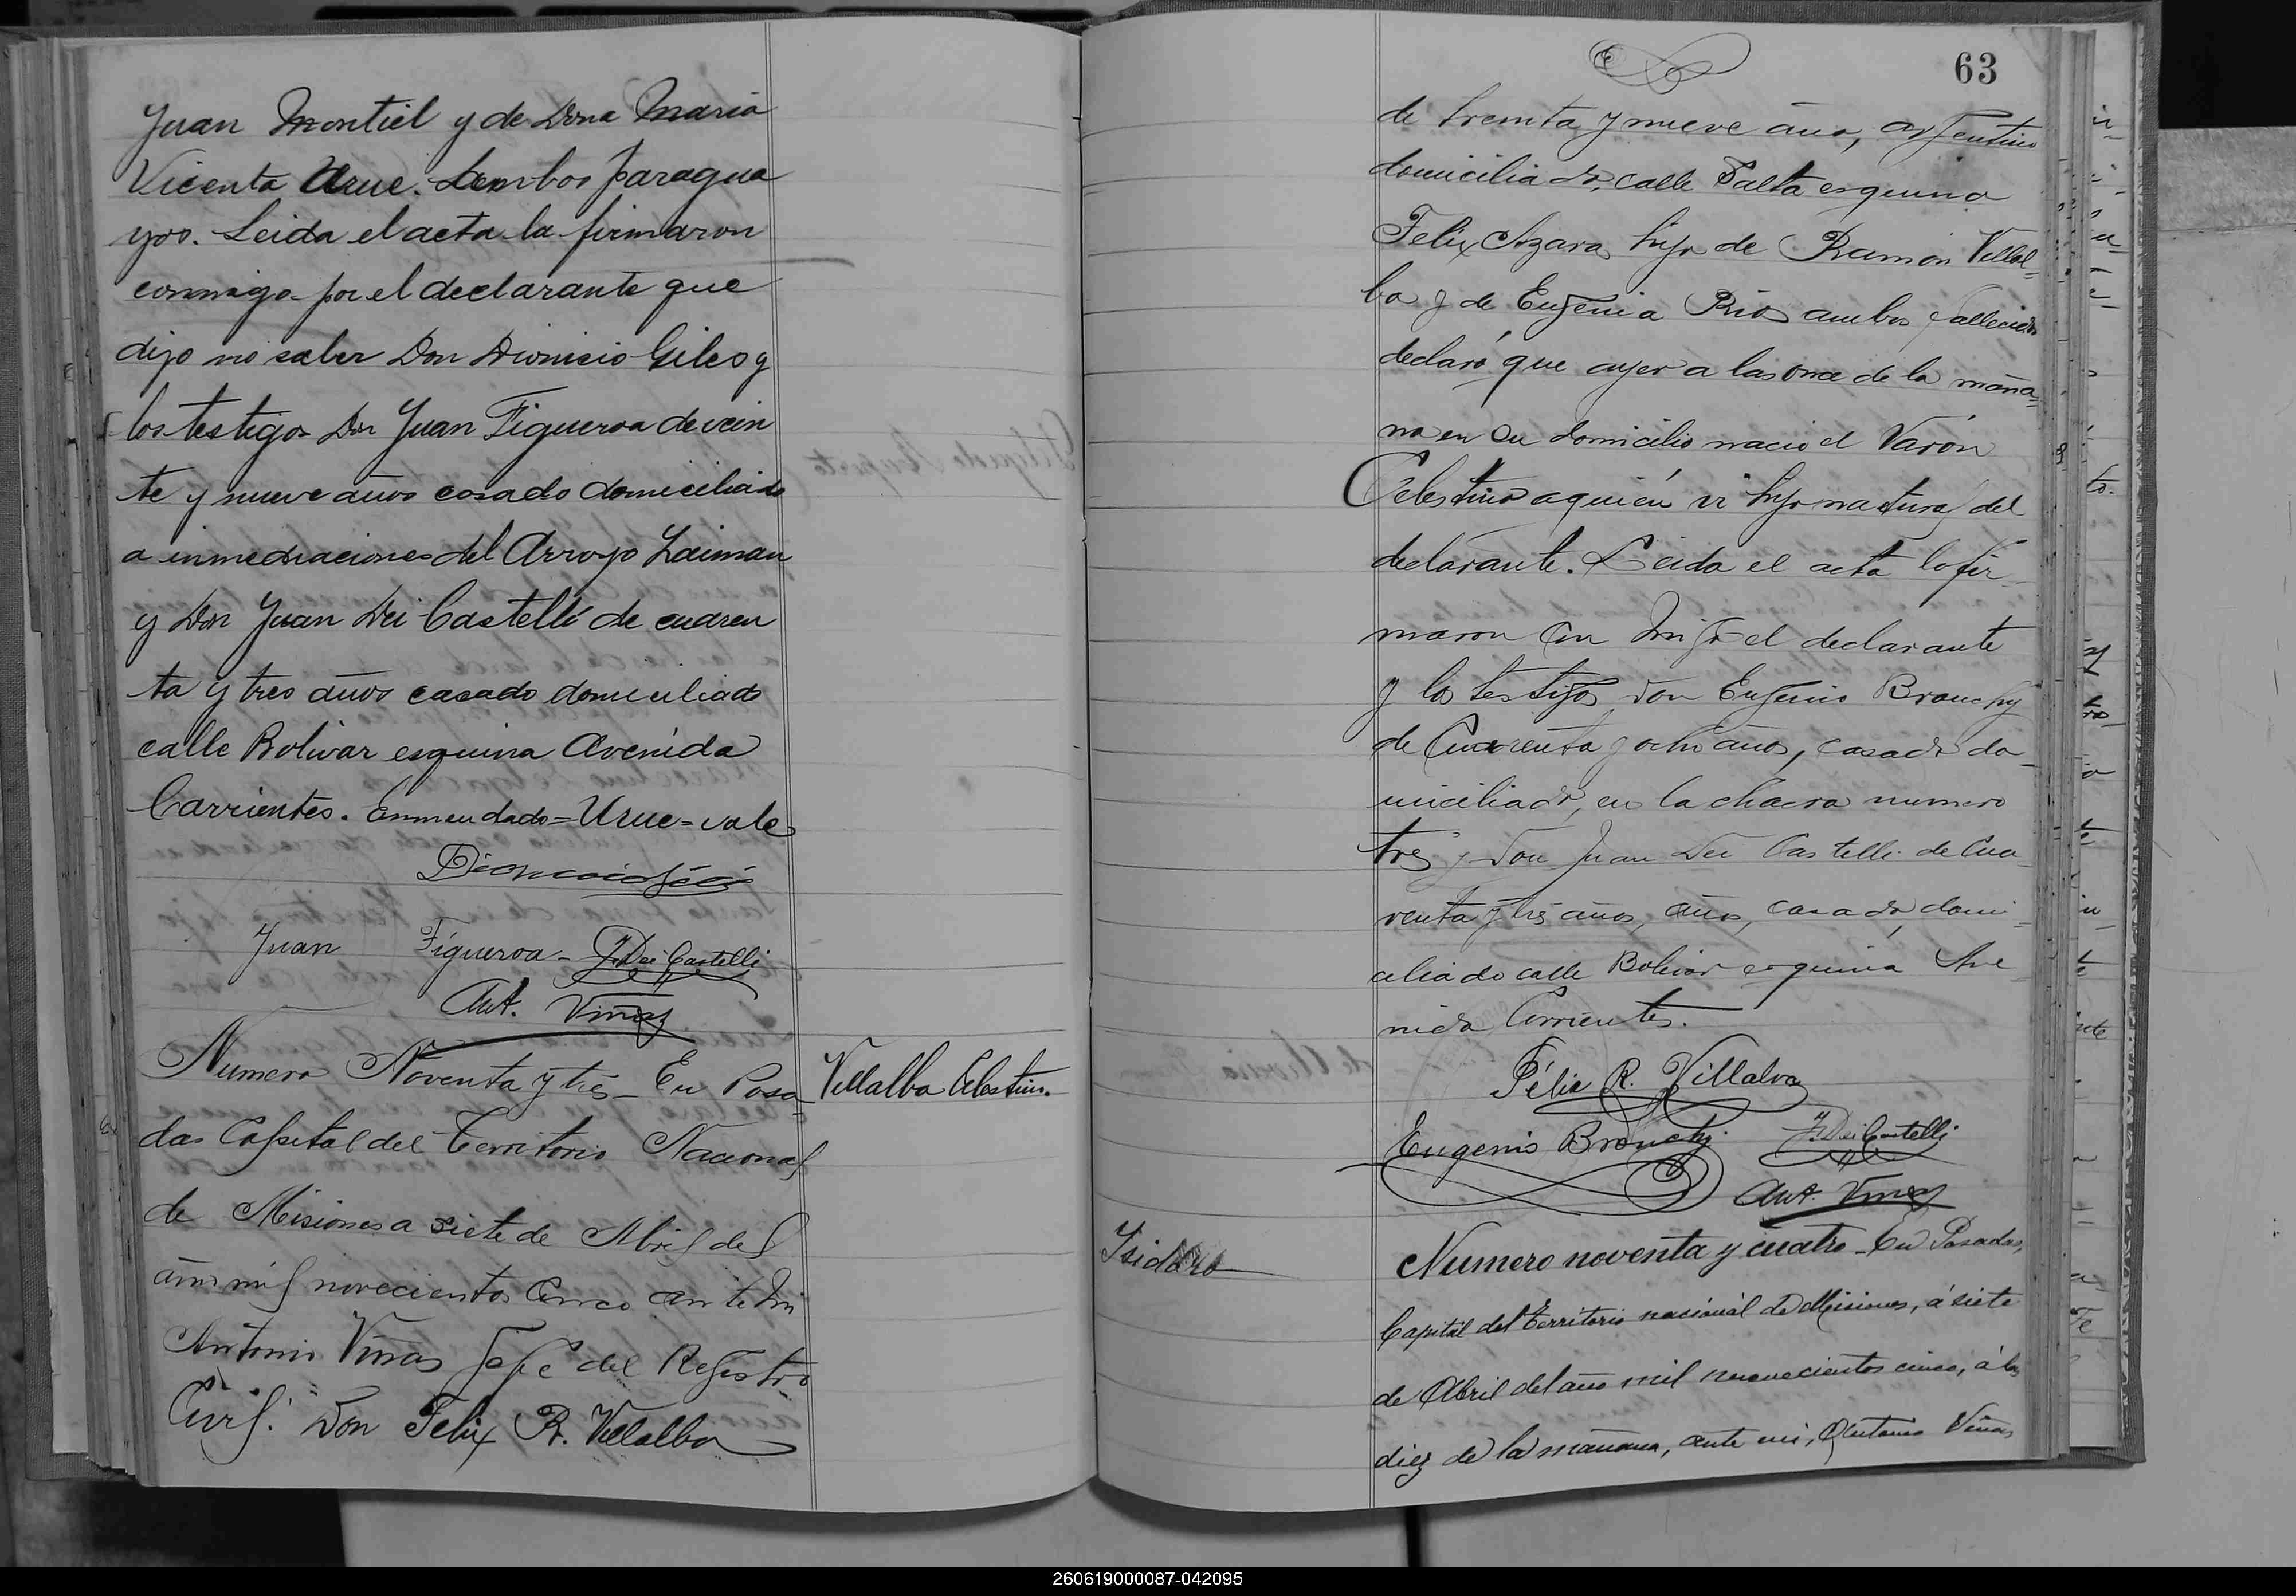 Juan Montiel y de Dona Maria
Vicenta Urue. Ambos paragua
yos. Leida el acta la firmaron
conmigo por el declarante que
dijo no saber Don Dionicio Giles y
los testigos Don Juan Figueroa de vein
te y nueve años casado domiciliado
a inmediaciones del Arroyo Zaiman
y Don Juan Dei Castelli de cuaren
ta y tres años casado domiciliado
calle Bolivar esquina Avenida
Corrientes. Enmendado=Urue=vale
Juan Figueroa - J. Dei Castelli
Ant. Viñas
Numero Noventa y tres - En Posa
Villalba Celestino.
das Capital del Territorio Nacional
de Misiones a siete de Abril del
año mil novecientos Cinco ante mi
Antonio Viñas Jefe del Registro
Civil. Don Felix R. Villalba
63
de treinta y nueve años, argentino
domiciliado, calle Salta esquina
Felix Azara, hijo de Ramón Villal=
ba y de Eugenia Rios ambos fallecidos
declaró que ayer a las once de la maña=
na en su domicilio nació el Varón
Celestino a quién vi hijo natural del
declarante. Leida el acta la fir
maron con migo el declarante
y los testigos, don Eugenio Bronchy
de Cuarenta y ocho años, casado do-
miciliado, en la chacra numero
tres y don Juan Dei Castelli de Cua-
renta y tres años, años, casado, domi=
ciliado calle Bolivar esquina Ave=
nida Corrientes.
Félix R. Villalva
Eugenio Bronchy J. Dei Castelli
Ant. Viñas
Isidoro
Numero noventa y cuatro - En Posadas,
Capital del Territorio nacional de Misiones, á siete
de Abril del año mil novecientos cinco, á las
diez de la mañana, ante mi, Antonio Viñas
260619000087-042095